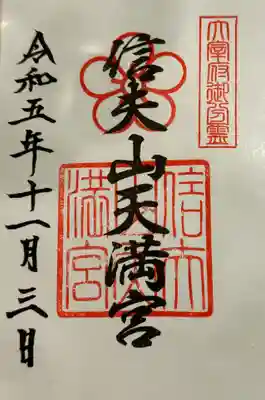 太宰府御分霊
信夫山天満宮
信夫
満宮
令和五年十一月三日